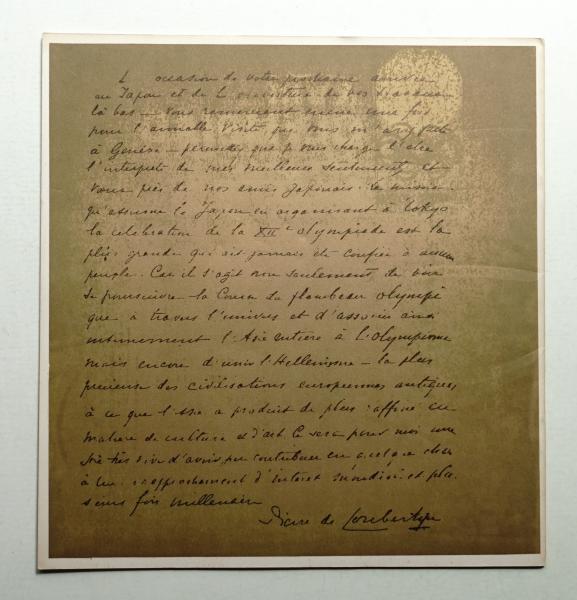 L occasion de votre prochaine arrivée
au Japon et de l ouverture de vos travaux
là bas — vous remerciant encore une fois
pour l'aimable visite que vous m'avez faite
à Genève — permettez que je vous charge d'être
l'interprète de mes meilleurs sentiments
vous près de nos amis japonais. La mission
qu'assume le Japon en organisant à Tokyo
la celebration de la XIIe olympiade est la
plus grande qui ait jamais été confiée à aucun
peuple. Car il s'agit non seulement de voir
se poursuivre la Course du flambeau olympi
que à travers l'univers et d'associer ainsi
intimement l'Asie entière à l'olympisme
mais encore d'unir l'Hellenisme — la plus
précieuse des civilisations européennes antiques,
à ce que l'Asie a produit de plus raffiné en
matière de culture et d'art. Ce sera pour moi une
joie très vive d'avoir pu contribuer en quelque chose
à un rapprochement d'interet mondial et plu
sieurs fois millenaire
Pierre de Coubertin